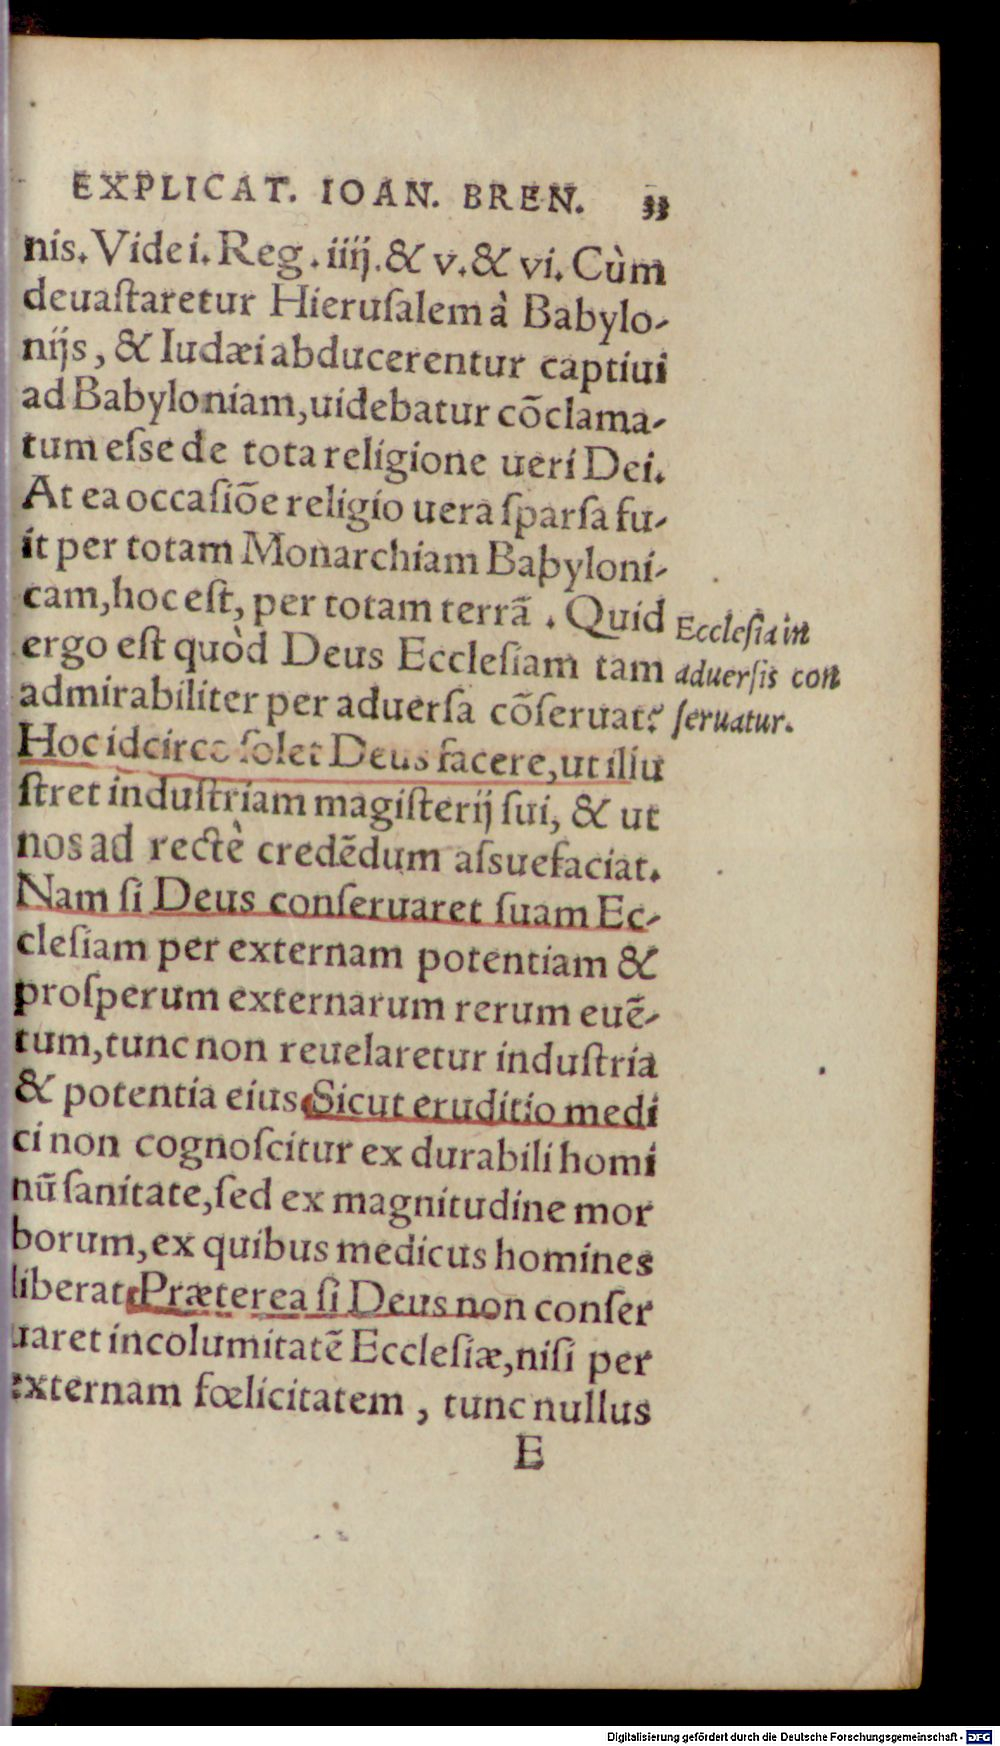 EXPLICAT. IOAN. BREN. 33
nis. Vide i. Reg. iiij. & v. & vi. Cùm
deuaſtaretur Hieruſalem à Babylo-
nijs, & Iudæi abducerentur captiui
ad Babyloniam, uidebatur cõclama-
tum eſse de tota religione ueri Dei.
At ea occaſiõe religio uera ſparſa fu-
it per totam Monarchiam Babyloni-
cam, hoc eſt, per totam terrã. Quid
ergo eſt quòd Deus Eccleſiam tam
admirabiliter per aduerſa cõſeruat?
Eccleſia in
aduerſis con
ſeruatur.
Hoc idcirco ſolet Deus facere, ut illu
ſtret induſtriam magiſterij ſui, & ut
nos ad rectè credẽdum aſsuefaciat.
Nam ſi Deus conſeruaret ſuam Ec-
cleſiam per externam potentiam &
proſperum externarum rerum euẽ-
tum, tunc non reuelaretur induſtria
& potentia eius. Sicut eruditio medi
ci non cognoſcitur ex durabili homi
nũ ſanitate, ſed ex magnitudine mor
borum, ex quibus medicus homines
liberat. Præterea ſi Deus non conſer
uaret incolumitatẽ Eccleſiæ, niſi per
externam fœlicitatem, tunc nullus
E
Digitalisierung gefördert durch die Deutsche Forschungsgemeinschaft - DFG